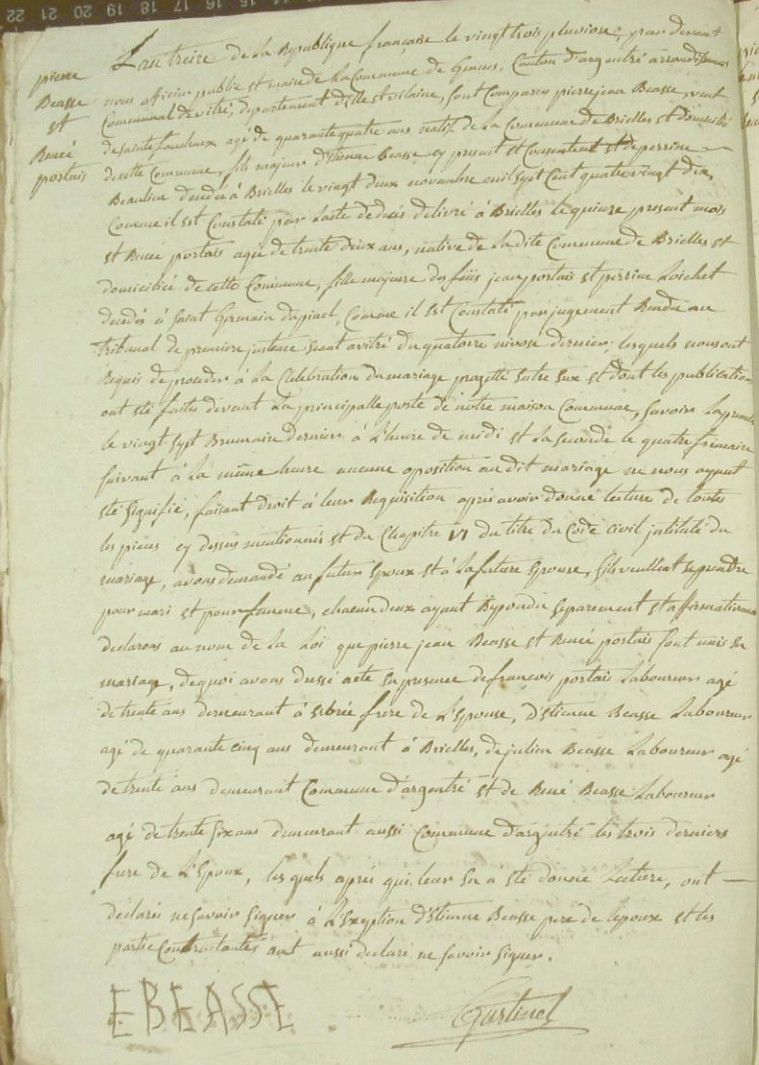 22 21 20 19 18 17 16 15 14
pierre
Beasse
et
Renée
portais
L'an treize de la Republique française le vingt trois pluviose, par devant
nous officier public et maire de la Commune de Gennes, Canton d'argentré arrondissement
Communal de vitré, departement d'ille et vilaine, sont Comparu pierre jean Beasse, veuf
de jeanne agé de quarante quatre ans natif de la Commune de Brielles et domicilié
de cette Commune, fils majeur d'Etienne Beasse cy present et Consentant et de perrine
Beaulieu decedée à Brielles le vingt deux novembre mil sept Cent quatre vingt dix,
Comme il est Constaté par l'acte de deces delivré à Brielles le quinze present mois
et Renée portais agée de trente deux ans, native de la dite Commune de Brielles et
domiciliée de cette Commune, fille majeure de feüs jean portais et perrine Loichet
decedés à Saint Germain du pinel, Comme il est Constaté par jugement Rendu au
tribunal de premiere justance seant a vitré du quatorze nivose dernier, lesquels nous ont
Requis de proceder à la Celebration du mariage projetté entre eux et dont les publications
ont été faites devant la principalle porte de notre maison Commune, savoir la premiere
le vingt sept Brumaire dernier à l'heure de midi et la seconde le quatre frimaire
suivant à la même heure aucune oposition au dit mariage ne nous ayant
été signifié, faisant droit à leur Requisition après avoir donné lecture de toutes
les pieces cy dessus mentionnés et du Chapitre VI du titre du Code Civil jntitulé du
mariage, avons demandé au futur Epoux et à la future Epouse, s'ils veullent se prendre
pour mari et pour femme, chacun deux ayant Repondu separement et affirmativement
declarons au nom de la Loi que pierre jean Beasse et Renée portais sont unis en
mariage, de quoi avons dressé acte en presence de francois portais Laboureur agé
de trente ans demeurant à Erbrée frere de l'Epouse, d'Etienne Beasse Laboureur
agé de quarante cinq ans demeurant à Brielles, de julien Beasse Laboureur agé
de trente ans demeurant Commune d'argentré et de René Beasse Laboureur
agé de trente six ans demeurant aussi Commune d'argentré les trois derniers
frere de l'Epoux, lesquels après qu'il leur en a été donné Lecture, ont
declaré ne savoir signer à l'Exeption d'Etienne Beasse pere de l'epoux et les
partie Contractantes ont aussi declaré ne savoir signer.
E BEASSE